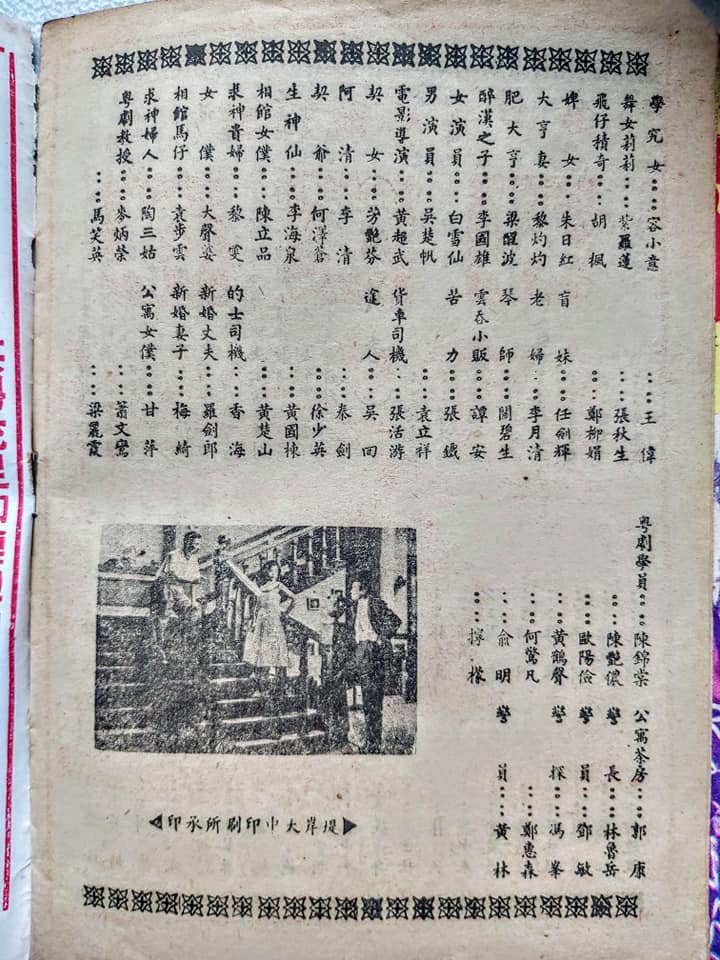 學究女……容小意　……王偉
舞女莉莉……紫羅蓮　……張秋生
飛仔積奇……胡楓　……鄭柳娟
婢女……朱日紅　盲妹……任劍輝
大亨妻……黎灼灼　老婦……李月清
肥大亨……梁醒波　琴師……關碧生
醉漢之子……李國雄　雲吞小販……譚安
女演員……白雪仙　苦力……張鐵
男演員……吳楚帆　……袁立祥
電影導演……黃超武　貨車司機……張活游
契女……芳艷芬　途人……吳回
阿清……李清　……秦劍
契爺……何澤蒼　……徐少英
生神仙……李海泉　……黃國棟
相館女僕……陳立品　……黃楚山
求神貴婦……黎雯　的士司機……香海
女僕……大聲婆　新婚丈夫……羅劍郎
相館馬仔……袁步雲　新婚妻子……梅綺
求神婦人……陶三姑　公寓女僕……甘萍
粵劇教授……麥炳榮　……蕭文鸞
……馬笑英　……梁麗霞
粵劇學員……陳錦棠　公寓茶房……郭康
……陳艷儂　警長……林魯岳
……歐陽儉　警員……鄧敏
……黃鶴聲　警探……馮峯
……何驚凡　……鄭惠森
……俞明　警員……黃林
……檸檬
堤岸大中印刷所承印